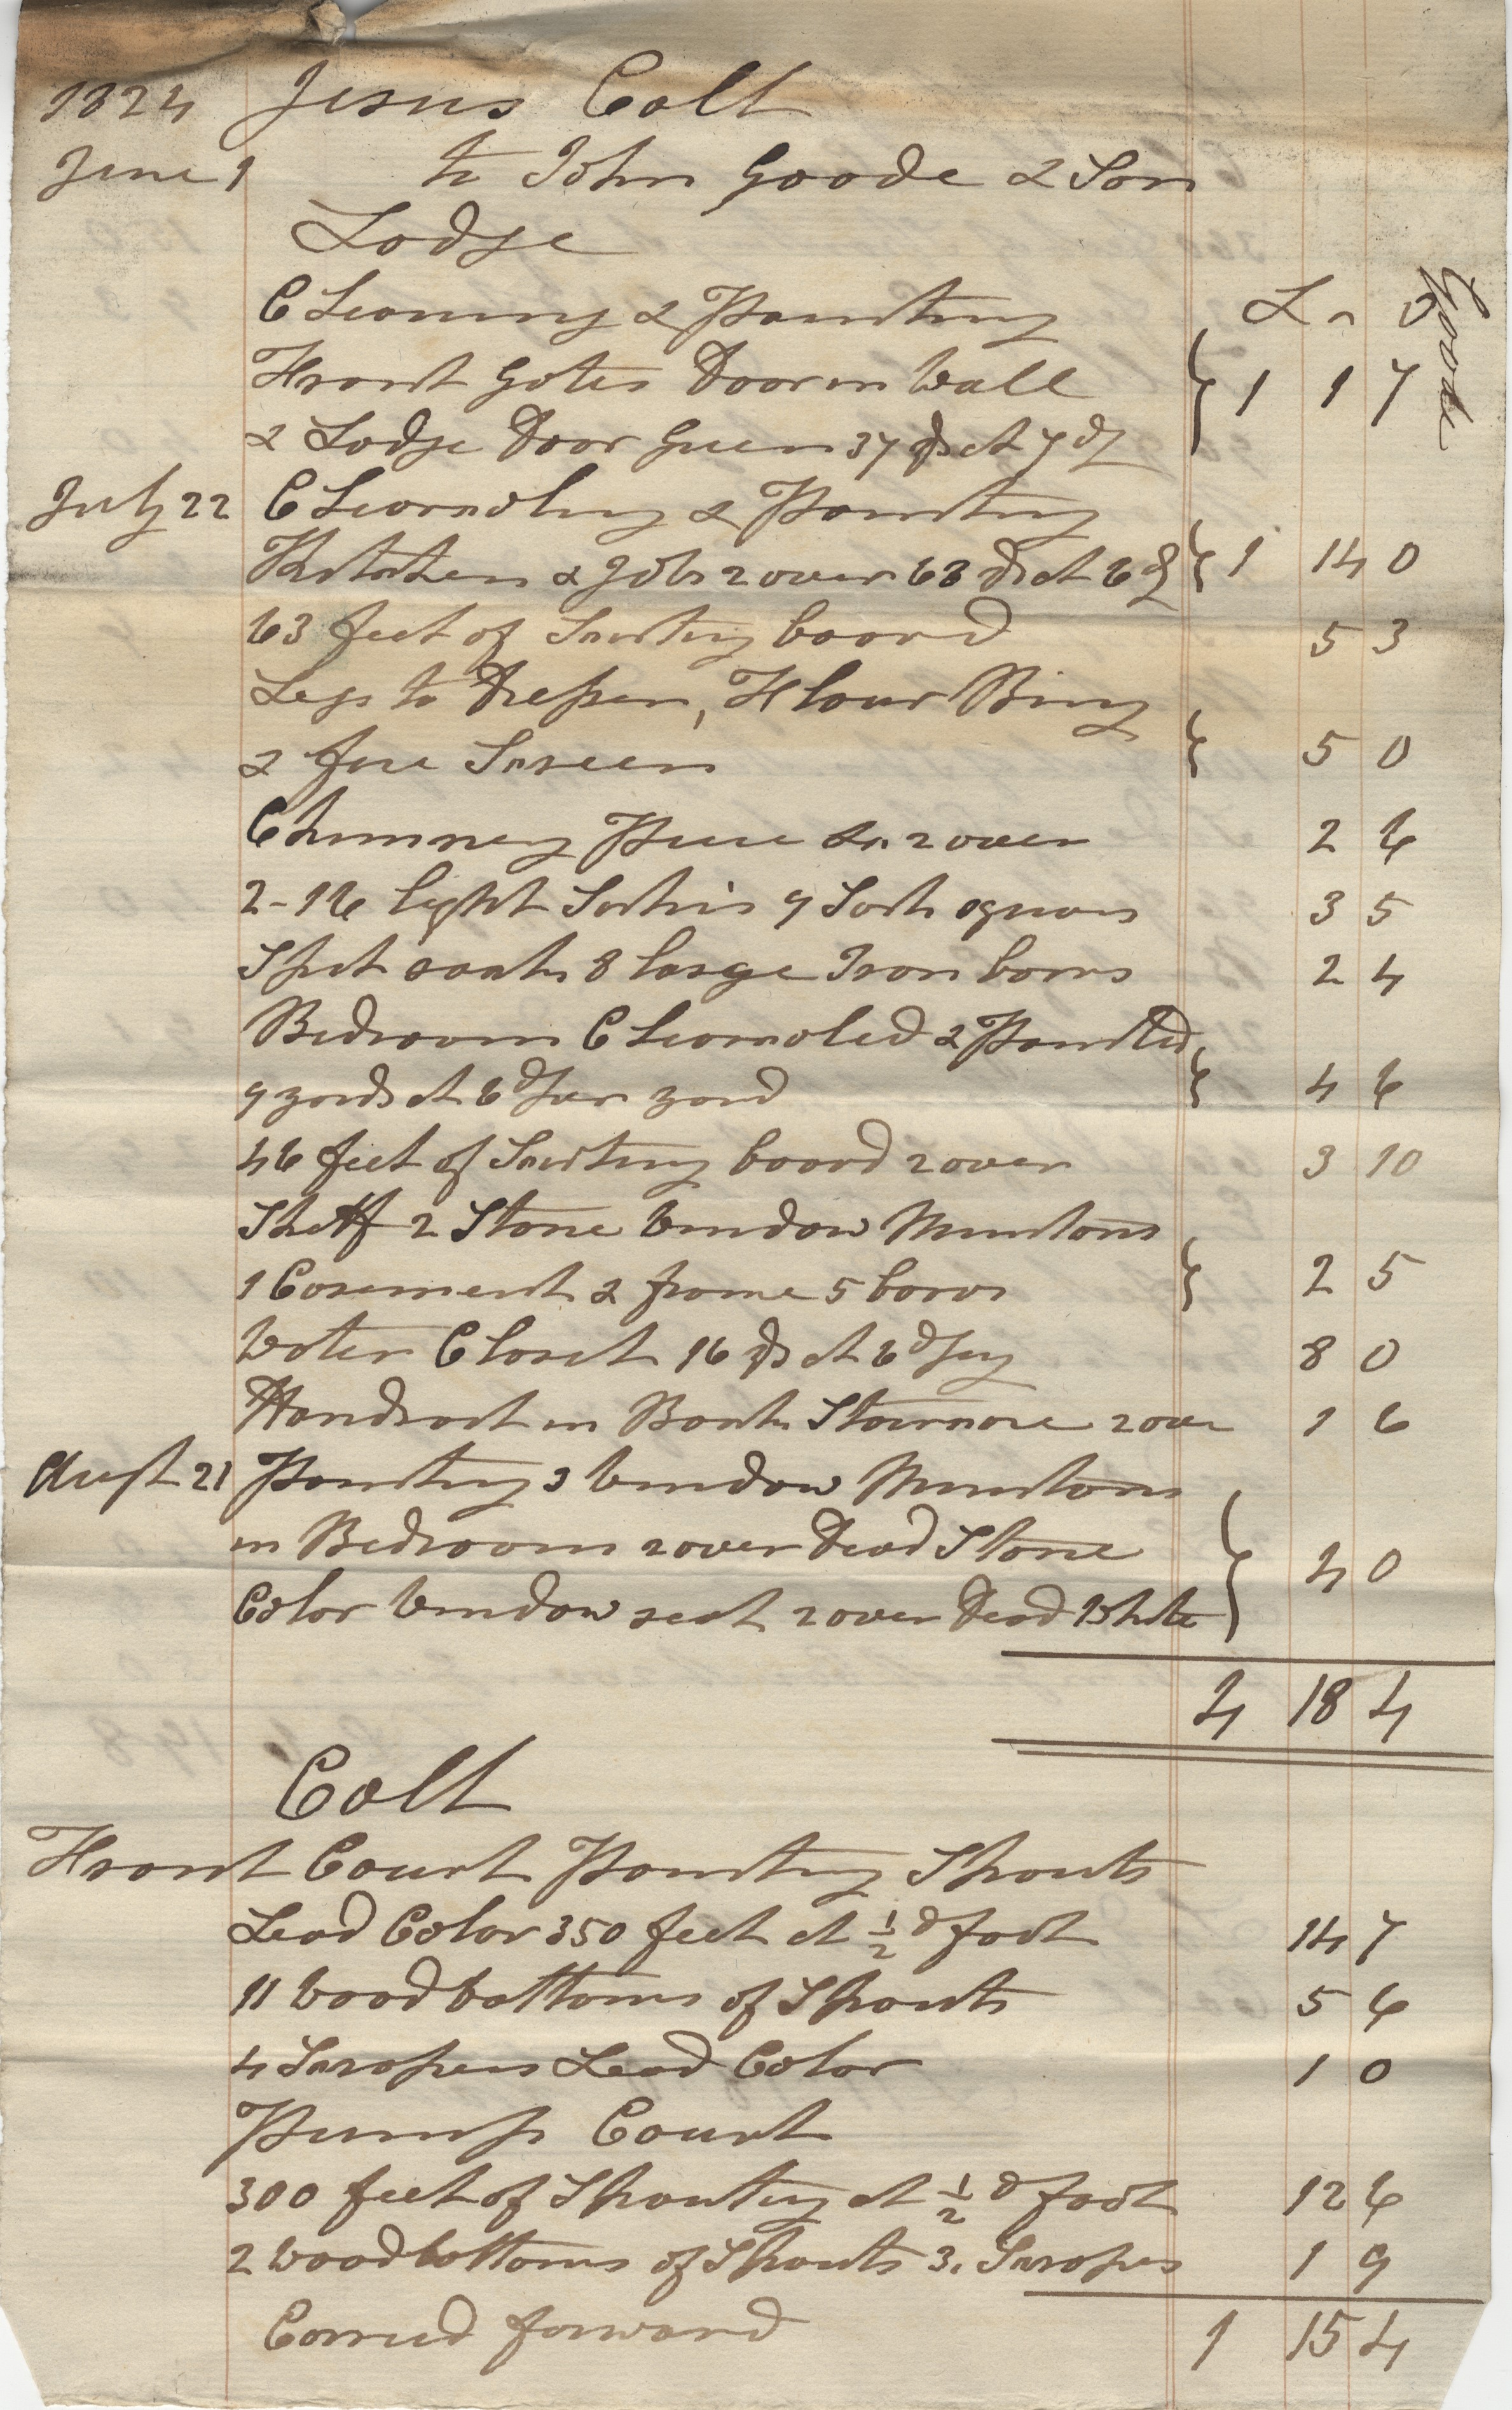 1824 Jesus Coll
June 1 to John Goode & Son
Lodge
Cleaning & Painting L s D
Front Gates Door in Wall
& Lodge Door Green 37 yds at 7d 1 1 7
Goode
July 22 Cleancoling & Painting
Kitchen & Jobs 2 over 68 yds at 6d 1 14 0
63 feet of Scirting board 5 3
Legs to Dresser, Flour Bing
& fire Screen 5 0
Chimney Piece &c 2 over 2 6
2-16 light Sashis 9 Sash squars 3 5
Spit rack 8 large Iron bars 2 4
Bedroom Cleancoled & Painted
9 yards at 6d per yard 4 6
46 feet of Scirting board 2 over 3 10
Shelf 2 Stone Window Muntons
1 Casement & frame 5 bars 2 5
Water Closet 16 yds at 6d 8 0
Handrail in Back Staircase 2 over 1 6
Augst 21 Painting 3 Window Muntons
in Bedroom 2 over Dead Stone
Color Window seat 2 over Dead White 4 0
4 18 4
Coll
Front Court Painting Spouts
Lead Color 350 feet at ½d foot 14 7
11 Wood bottoms of Spouts 5 6
4 Scrapers Lead Color 1 0
Pump Court
300 feet of Spouting at ½d foot 12 6
2 Wood bottoms of Spouts 3 Scrapes 1 9
Carried forward 1 15 4